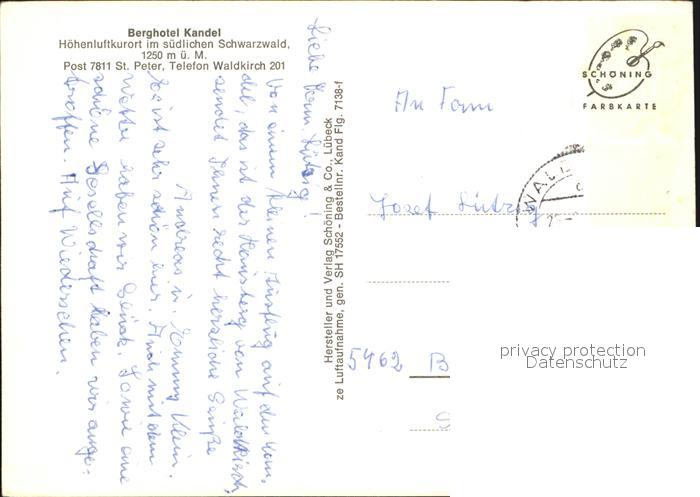 Berghotel Kandel
Höhenluftkurort im südlichen Schwarzwald,
1250 m ü. M.
Post 7811 St. Peter, Telefon Waldkirch 201
Liebe Fam. Lützig!
Von einem kleinen Ausflug auf den Kan-
del, das ist der Hausberg von Waldkirch
sendet Ihnen recht herzliche Grüße
Andreas u. Emmy Klein.
Es ist sehr schön hier. Auch mit dem
Wetter haben wir Glück. Sowie eine
schöne Gesellschaft haben wir ange-
troffen. Auf Wiedersehen.
Hersteller und Verlag Schöning & Co., Lübeck
ze Luftaufnahme, gen. SH 17552 - Bestellnr. Kand Flg. 7138-f
SCHÖNING
FARBKARTE
WALD
An Fam
Josef Lützig
5462 B
privacy protection
Datenschutz